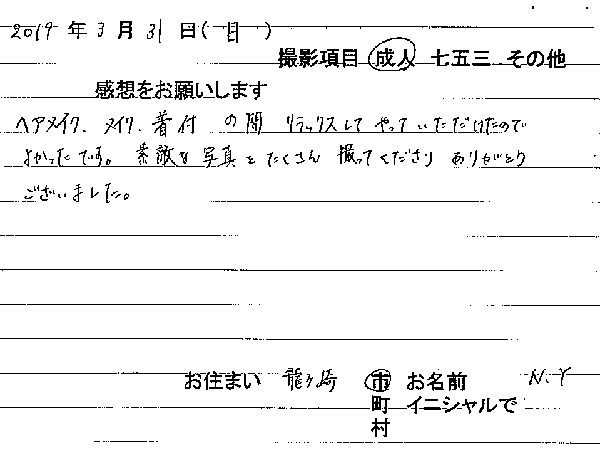 2019年3月31日(日)
撮影項目 成人 七五三 その他
感想をお願いします
ヘアメイク、メイク、着付の間リラックスしてやっていただけたので
よかったです。素敵な写真をたくさん撮ってくださりありがとう
ございました。
お住まい 龍ヶ崎 市 お名前 N.Y
町 イニシャルで
村